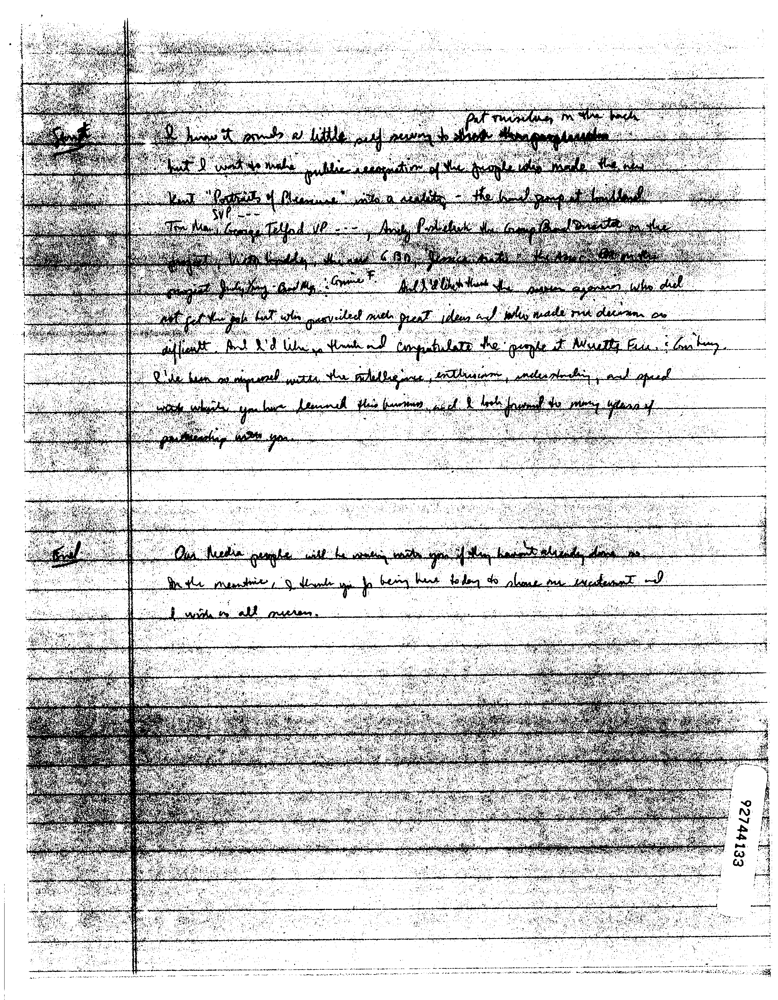 pat ourselves on the back
I know it sounds a little self serving to
but I want to make public recognition of the people who made the new
Kent "Portraits of Pleasure" into a reality - the brand group at Lorillard
SVP ---
Tom Mau, George Telford VP ---, Andy Pasheluk the Group Brand Director on the
project, Vicky the new GBD, Jessica the
project Judy King Brd Mgr : Connie F. And I'd like to thank the seven agencies who did
not get the job but who provided such great ideas and who made our decision so
difficult. And I'd like to thank and congratulate the people at Avrett Free : Ginsberg.
I've been so impressed with the intelligence, enthusiasm, understanding, and speed
with which you have learned this business, and I look forward to many years of
partnership with you.
End
Our Media people will be working with you if they haven't already done so.
In the meantime, I thank you for being here today to share our excitement and
I wish us all success.
92744133